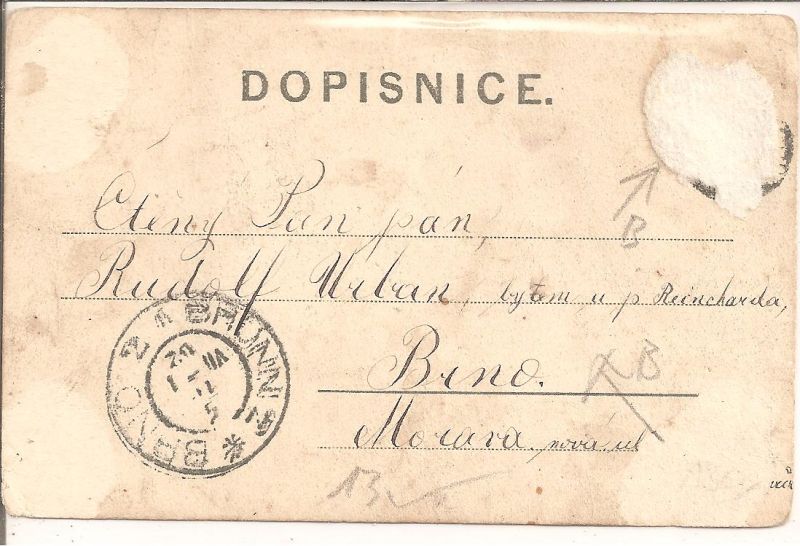 DOPISNICE.
Ctěný Pan pán,
B
Rudolf Urban, bytem u p. Reincharda,
Brno.
B
Morava, nová ul
BRÜNN
BRNO 2
13